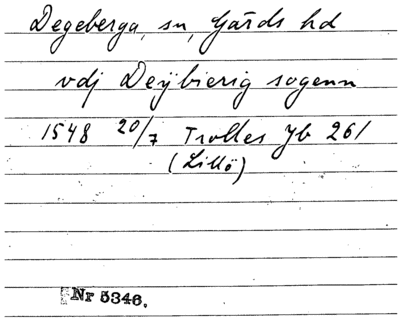 Degeberga, sn, Gärds hd
vdj Deÿbierig sogenn
1548 20/7 Trolles Jb 261
(Lillö)
Nr 5346.